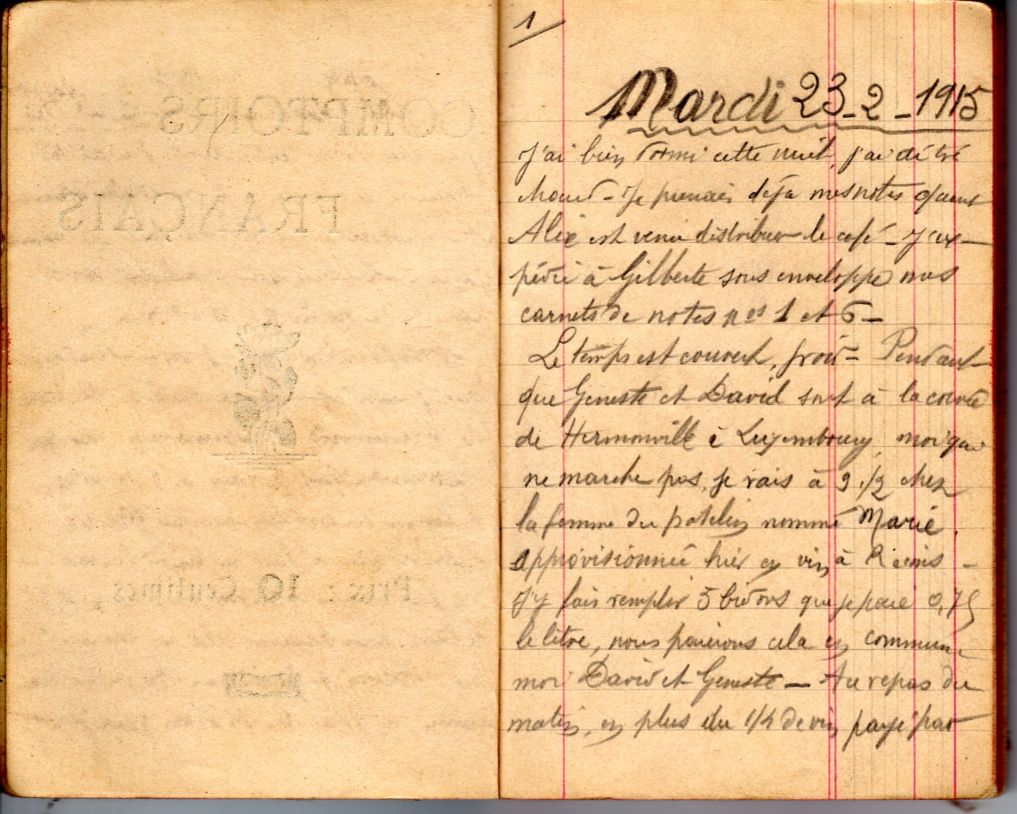 COMPTOIRS
FRANÇAIS
Prix : 10 Centimes
1
Mardi 23-2-1915
J'ai bien dormi cette nuit, j'ai été
chaud - Je prenais déjà mes notes quand
Alix est venu distribuer le café - J'ex-
pédie à Gilberte sous enveloppe mes
carnets de notes nos 1 et 6 -
Le temps est couvert, froid - Pendant
que Geneste et David sont à la corvée
de Hermonville à Luxembourg, moi qui
ne marche pas, je vais à 9 1/2 chez
la femme du patelin nommé Marie,
approvisionnée hier en vin à Reims -
J'y fais remplir 5 bidons que je paie 0,75
le litre, nous paierons cela en commun
moi David et Geneste - Au repas du
matin, en plus du 1/4 de vin payé par